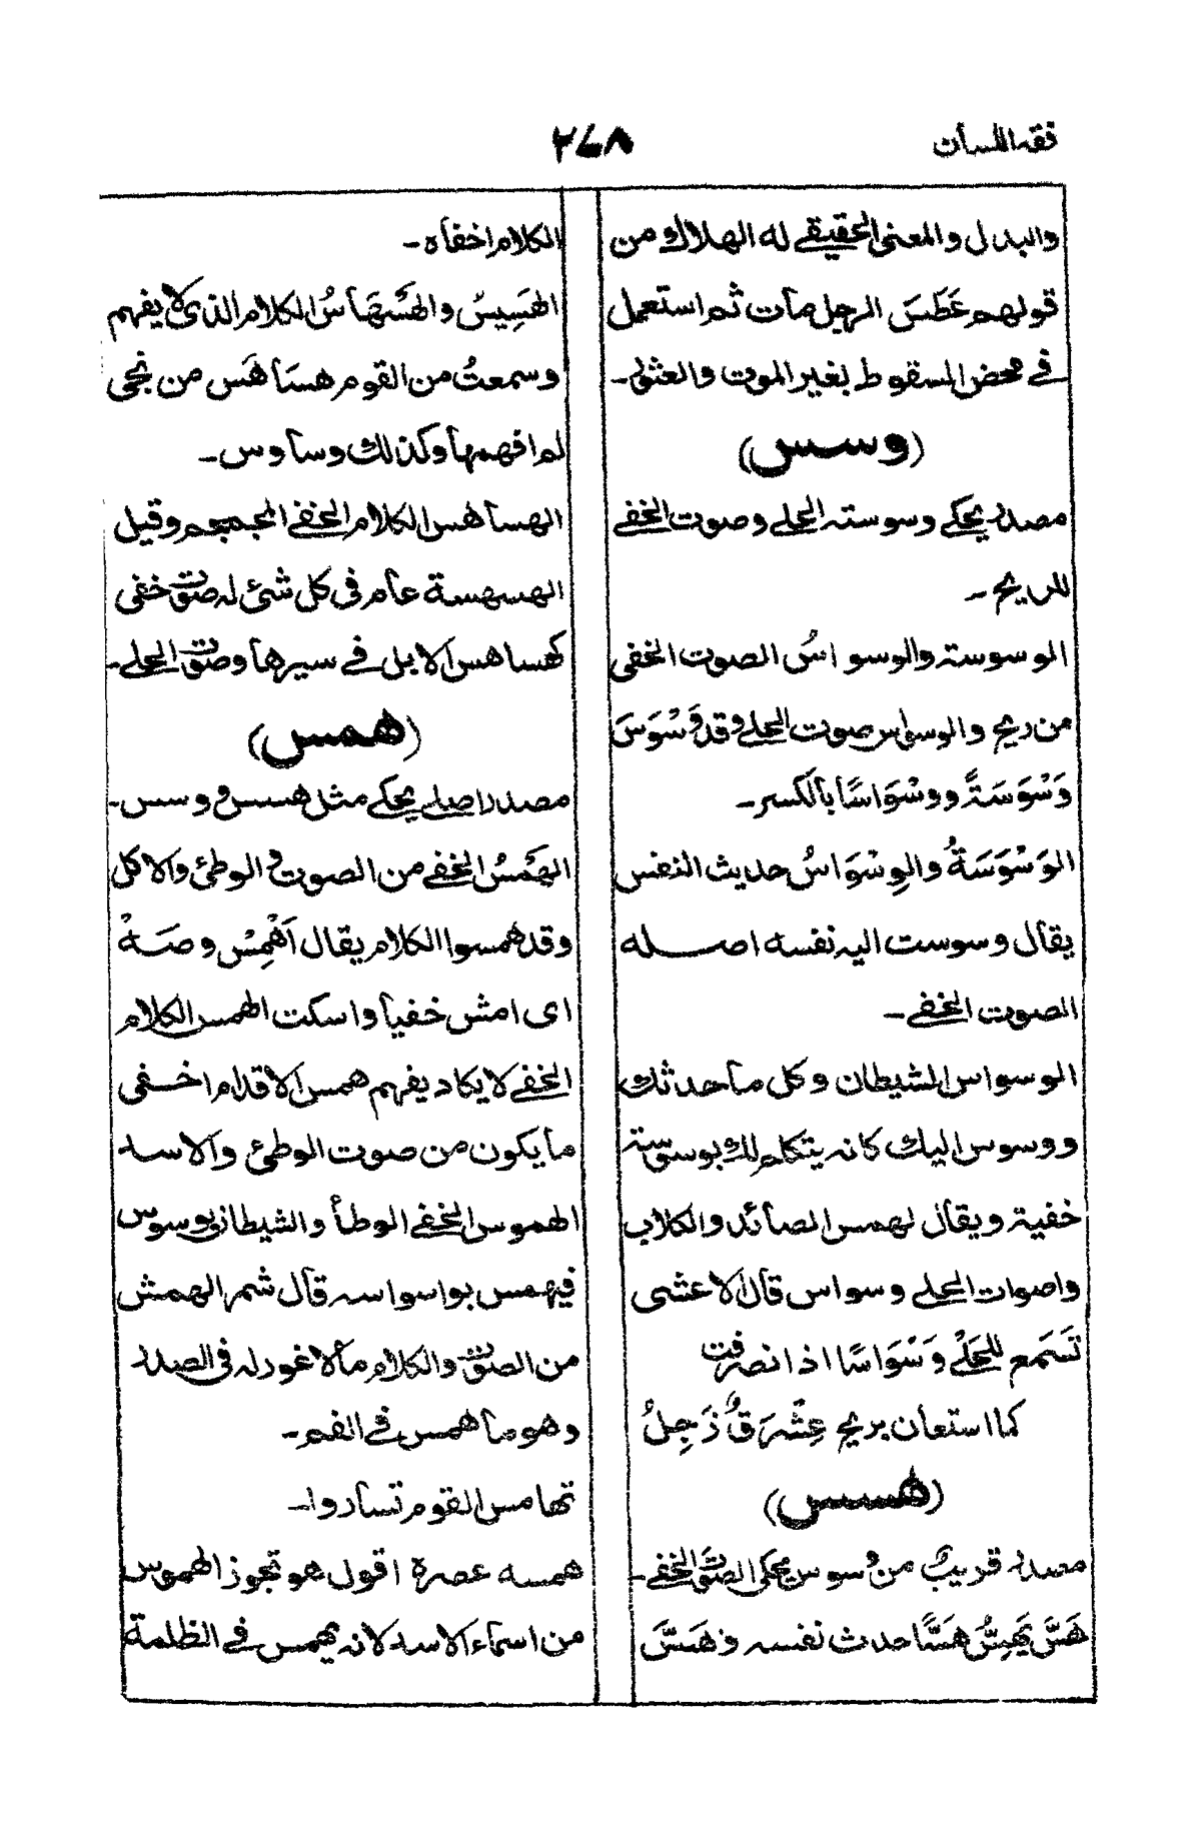 فقه اللسان
۲۶۸
والبدل والمعنى الحقيقے له الهلاك و من
قولهم عَطَسَ الرجل مات ثم استعمل
فے محض السقوط بغير الموت والعثو۔
(وسس)
مصدر يحكے وسوسته الحلے وصوت الخفے
للريح ۔
الوسوسته والوسواسُ الصوت الخفى
من ريح والوسواس صوت الحلے وقد وَسْوَسَ
وَسْوَسَةً ووسْوَاسًا بالكسر۔
الوَسْوَسَةُ والوِسْوَاسُ حديث النفس
يقال وسوست اليه نفسه اصله
الصوت الخفے ۔
الوسواس الشيطان وكل ما حدثك
ووسوس اليك كانه يتكلم لك بوسوسته
خفية ويقال لهمس الصائد والكلاب
واصوات الحلے وسواس قال الاعشى
تَسَمع للحَلْے وَسْوَاسًا اذا انصرفت
كما استعان بريح عِشْرَقٌ زَجِلُ
(هسس)
مصدر قريبٌ من وسوس يحكى الصوت الخفے۔
هَسَّ يَهِسُّ هَسًّا حدث نفسه وهَسَّ
الكلام اخفاه ۔
الهَسِيسُ والهَسْهَاسُ الكلام الذى لا يفهم
وسمعتُ من القوم هسَاهَس من نجى
لم افهمها وكذلك وساوس ۔
الهساهس الكلام الخفے المجمجم وقيل
الهسهسة عام فى كل شئ له صوت خفى
كهساهس الابل فے سيرها وصوت الحلے۔
(همس)
مصدر اصلے يحكے مثل هسس و وسس۔
الهَمْسُ الخفے من الصوت و الوطئ والاكل
وقد همسوا الكلام يقال اَهْمِسْ وصَهْ
اى امش خفيا واسكت الهمس الكلام
الخفے لا يكاد يفهم همس الاقدام اخفى
ما يكون من صوت الوطئ والاسد
الهموس الخفے الوطأ والشيطان يوسوس
فيهمس بواسواسه قال شمر الهمش
من الصوت والكلام مالا غور له فى الصدر
وهو ما همس فے الفم ۔
تهامس القوم تساروا۔
همسه عصره اقول هو تجوز الهموس
من اسماء الاسد لانه يهمس فے الظلمة